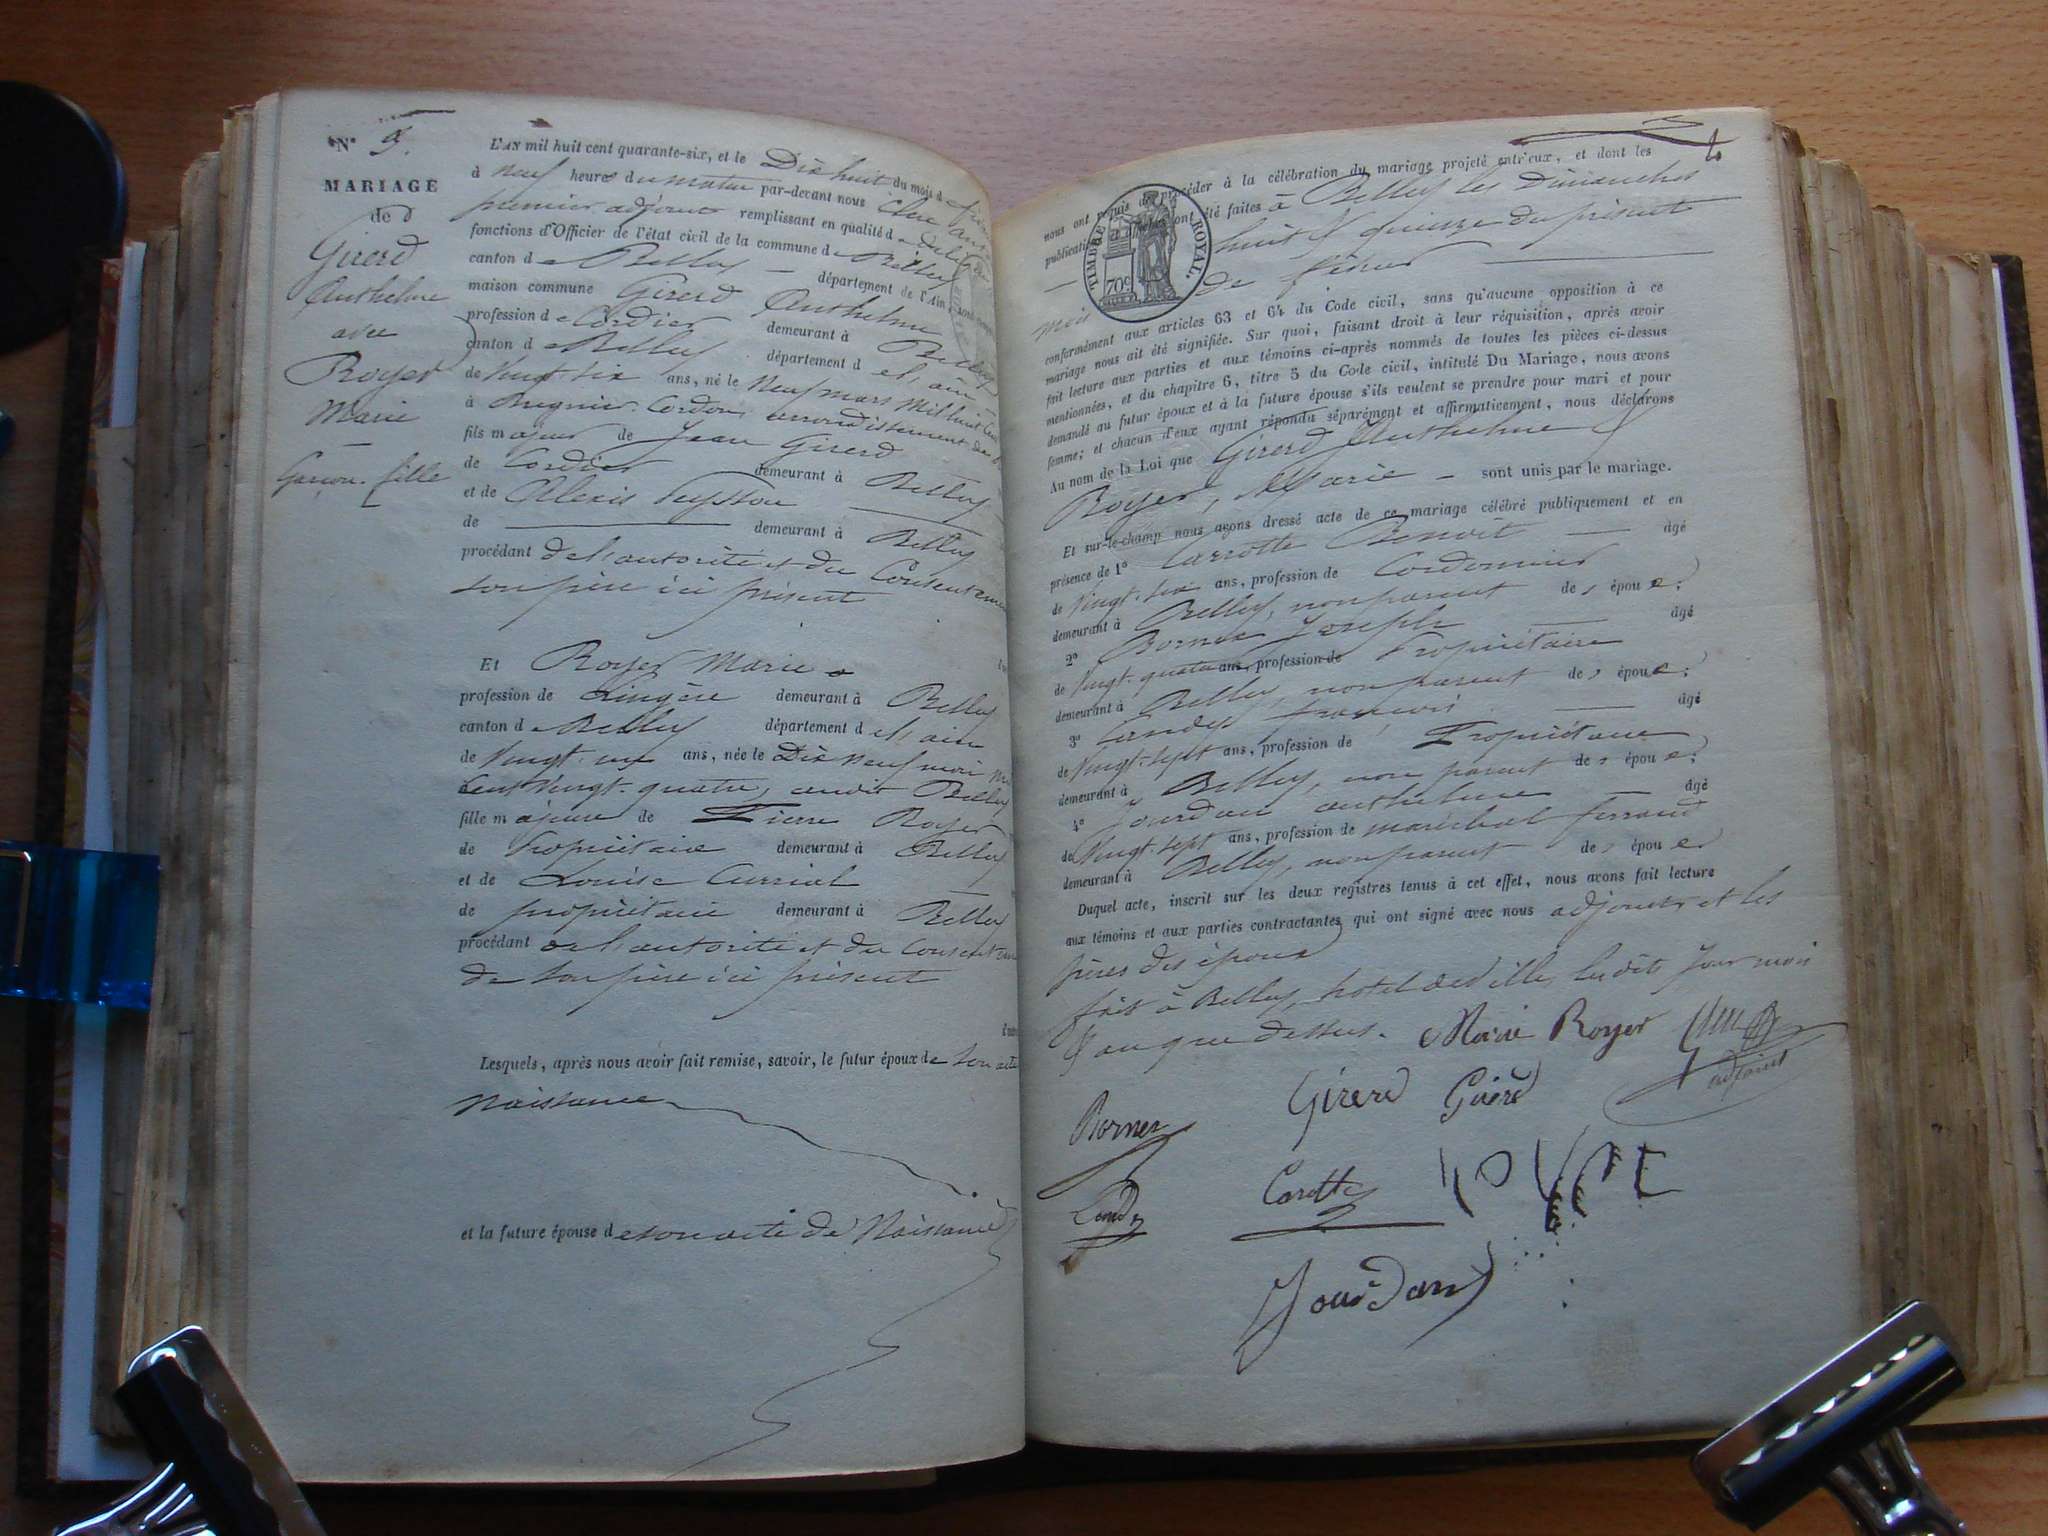 N° 5.
MARIAGE
de
Girerd
Anthelme
avec
Royer
Marie
Garçon. fille
L'AN mil huit cent quarante-six, et le Dix huit du mois d
à neuf heures du matin par-devant nous
premier adjoint remplissant en qualité d
fonctions d'Officier de l'état civil de la commune de Belley
canton de Belley département de l'Ain,
maison commune Girerd Anthelme
profession de Cordier demeurant à Belley
canton de Belley département de l'ain
de Vingt-six ans, né le Neuf mars Mil huit Cent
à Bregnier-Cordon, arrondissement de
fils majeur de Jean Girerd
de Cordier demeurant à Belley
et de Alexis Peysson
de demeurant à Belley
procédant de l'autorité et du Consentement
son père ici présent
Et Royer Marie
profession de Lingère demeurant à Belley
canton de Belley département de l'ain
de Vingt-un ans, née le Dix Neuf moi
Cent Vingt-quatre, audit Belley
fille majeure de Pierre Royer
de Propriétaire demeurant à Belley
et de Louise Curriat
de propriétaire demeurant à Belley
procédant de l'autorité et du Consentement
de son père ici présent
Lesquels, après nous avoir fait remise, savoir, le futur époux de son acte
Naissance
et la future épouse de son acte de Naissance
4
nous ont requis de procéder à la célébration du mariage projeté entr'eux, et dont les
publications ont été faites à Belley les Dimanches
huit & quinze du présent
mois de février
TIMBRE ROYAL.
70c
conformément aux articles 63 et 64 du Code civil, sans qu'aucune opposition à ce
mariage nous ait été signifiée. Sur quoi, faisant droit à leur réquisition, après avoir
fait lecture aux parties et aux témoins ci-après nommés de toutes les pièces ci-dessus
mentionnées, et du chapitre 6, titre 5 du Code civil, intitulé Du Mariage, nous avons
demandé au futur époux et à la future épouse s'ils veulent se prendre pour mari et pour
femme; et chacun d'eux ayant répondu séparément et affirmativement, nous déclarons
Au nom de la Loi que Girerd Anthelme &
Royer, Marie sont unis par le mariage.
Et sur-le-champ nous avons dressé acte de ce mariage célébré publiquement et en
présence de 1° Carrotte Benoit âgé
de Vingt-six ans, profession de Cordonnier
demeurant à Belley, non parent de, épou
2° Borner Joseph âgé
de Vingt-quatre ans, profession de Propriétaire
demeurant à Belley, non parent de, épou
3° Landes françois âgé
de Vingt-sept ans, profession de Propriétaire
demeurant à Belley, non parent de, épou
4° Jourdan anthelme âgé
de Vingt-sept ans, profession de maréchal ferrand
demeurant à Belley, non parent de, épou
Duquel acte, inscrit sur les deux registres tenus à cet effet, nous avons fait lecture
aux témoins et aux parties contractantes qui ont signé avec nous adjoint et les
pères des époux
fait à Belley, hotel de Ville, ledit jour mois
& an que dessus. Marie Royer
adjoint
Girerd Girerd
Borner
Carotte
Jourdan